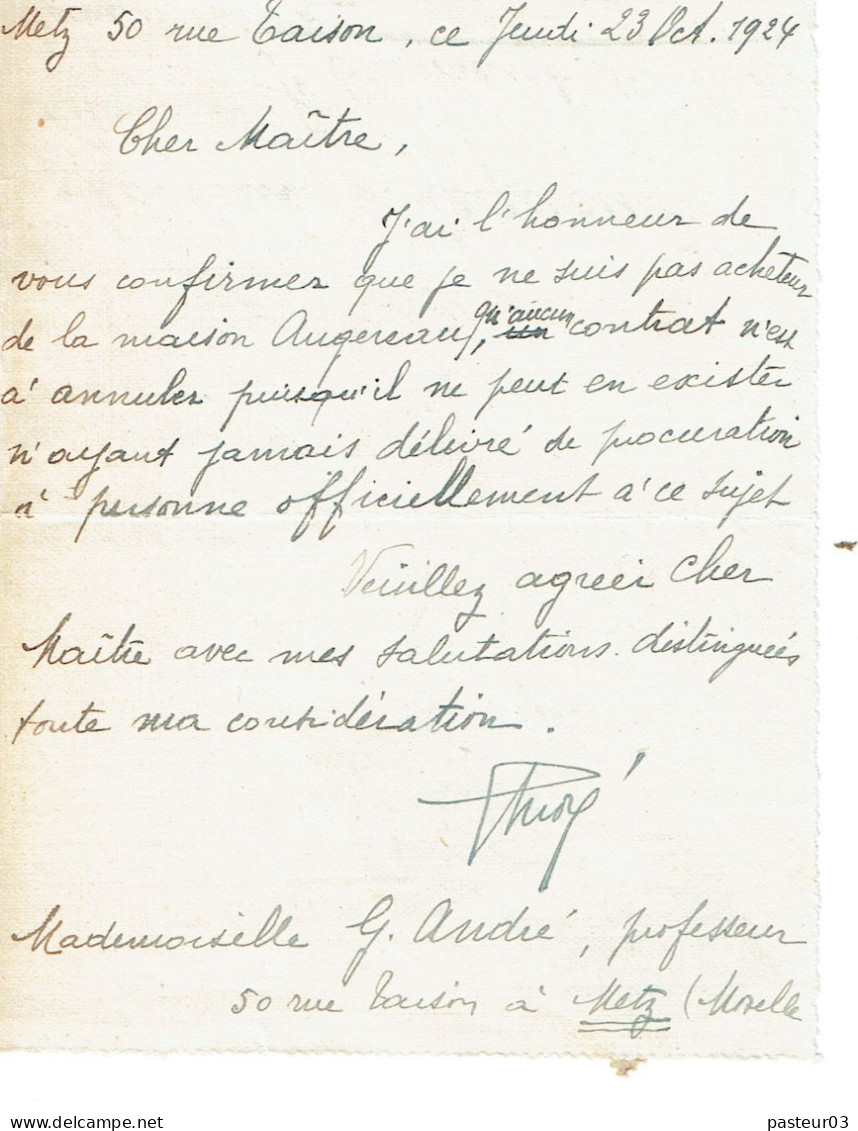 Metz 50 rue Taison, ce Jeudi 23 Oct. 1924
Cher Maître,
J'ai l'honneur de
vous confirmer que je ne suis pas acheteur
de la maison Augereau, qu'aucun contrat n'est
à annuler puisqu'il ne peut en exister
n'ayant jamais délivré de procuration
à personne officiellement à ce sujet
Veuillez agréer cher
Maître avec mes salutations distinguées
toute ma considération.
Mademoiselle G. André, professeur
50 rue Taison à Metz (Moselle
www.delcampe.net
pasteur03